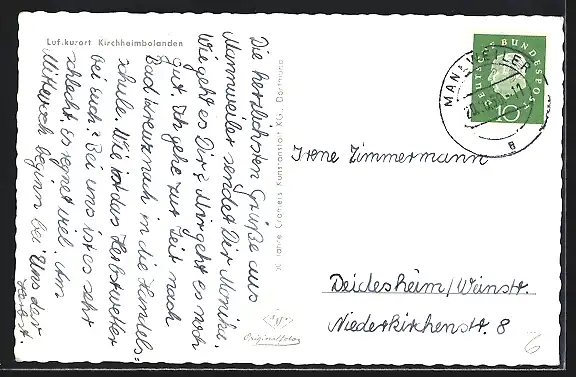 Luftkurort Kirchheimbolanden
Die herzlichsten Grüße aus
Mannweiler sendet Dir Monika.
Wie geht es Dir? Mir geht es noch
gut. Ich gehe zur Zeit nach
Bad Kreuznach in die Handels=
schule. Wie ist das Herbstwetter
bei Euch? Bei uns ist es sehr
schlecht. Es regnet viel. Am
Mittwoch beginn bei Uns der
Herbst.
50 Jahre Cramers Kunstanstalt KG., Dortmund
Originalfoto
DEUTSCHE BUNDESPOST
10
MANNWEILER
a
Irene Zimmermann
Deidesheim/Weinstr.
Niederkirchenstr. 8
6